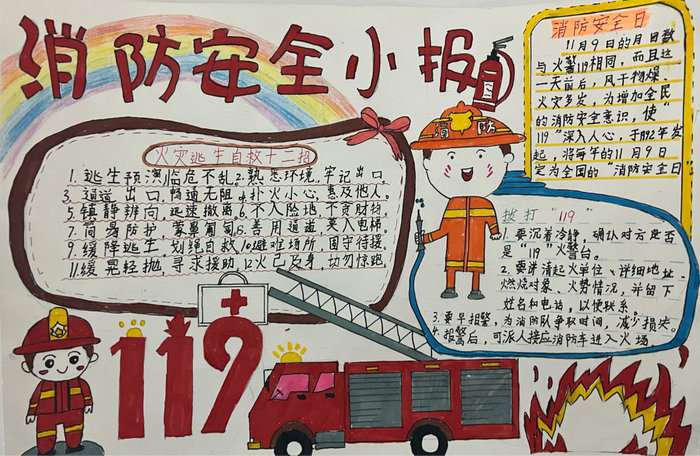 消防安全小报
消防安全日
11月9日的月日数
与火警119相同，而且这
一天前后，风干物燥、
火灾多发，为增加全民
的消防安全意识，使"
119"深入人心，于1992年发
起，将每年的11月9日
定为全国的"消防安全日
火灾逃生自救十二招
1.逃生预演，临危不乱。2.熟悉环境，牢记出口，
3.通道出口，畅通无阻。4.扑火小心，惠及他人。
5.镇静辨向，迅速撤离。6.不入险地，不贪财材，
7.简身防护，蒙鼻匍匐。8.善用通道，莫入电梯，
9.缓降逃生，划绳自救。10.避难场所，固守待援。
11.缓晃轻抛，寻求援助。12.火已及身，切勿惊跑，
消防
拨打"119"
1.要沉着冷静，确认对方是否
是"119"火警台。
2.要讲清起火单位、详细地址、
燃烧对象、火势情况，并留下
姓名和电话，以便联系。
3.要早报警，为消防队争取时间，减少损失。
4.报警后，可派人接应消防车进入火场
119